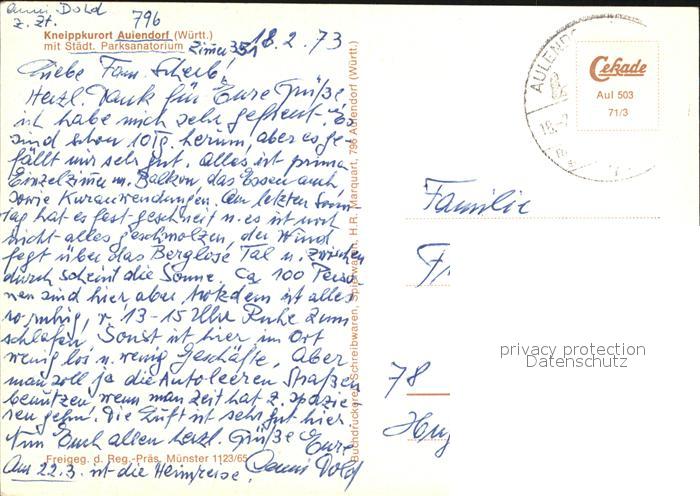 Anni Dold
z. Zt. 796
Kneippkurort Aulendorf (Württ.)
mit Städt. Parksanatorium Zimm 351 18.2.73
Liebe Fam. Scherb!
Herzl. Dank für Eure Grüße
ich habe mich sehr gefreut. Es
sind schon 10 Tg. herum, aber es ge-
fällt mir sehr gut. Alles ist prima
Einzelzimm m. Balkon, das Essen auch,
sowie Kuranwendungen. Am letzten Sonn-
tag hat es fest geschneit u. es ist noch
nicht alles geschmolzen, der Wind
fegt über das Berglose Tal u. zwischen
durch scheint die Sonne. Ca 100 Perso-
nen sind hier, aber trotzdem ist alles
so ruhig, v. 13-15 Uhr Ruhe zum
schlafen. Sonst ist hier im Ort
wenig los u. wenig Geschäfte, Aber
man soll ja die Autoleeren Straßen
benützen wenn man Zeit hat z. spazie-
ren gehn. Die Luft ist sehr gut hier.
Nun Euch allen herzl. Grüße Eure
Freigeg. d. Reg.-Präs. Münster 1123/65
Am 22.3. ist die Heimreise. Anni Dold
Buchdruckerei, Schreibwaren, Spielwaren, H.R. Marquart, 796 Aulendorf (Württ.)
AULENDO
18.-2
Cekade
Aul 503
71/3
Familie
78
privacy protection
Datenschutz